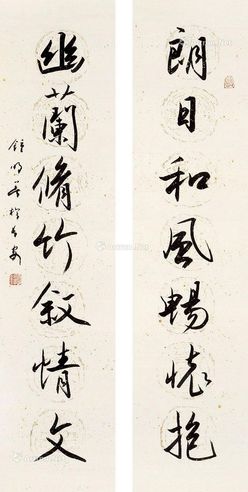 朗日和風暢懷抱
幽蘭脩竹叙情文